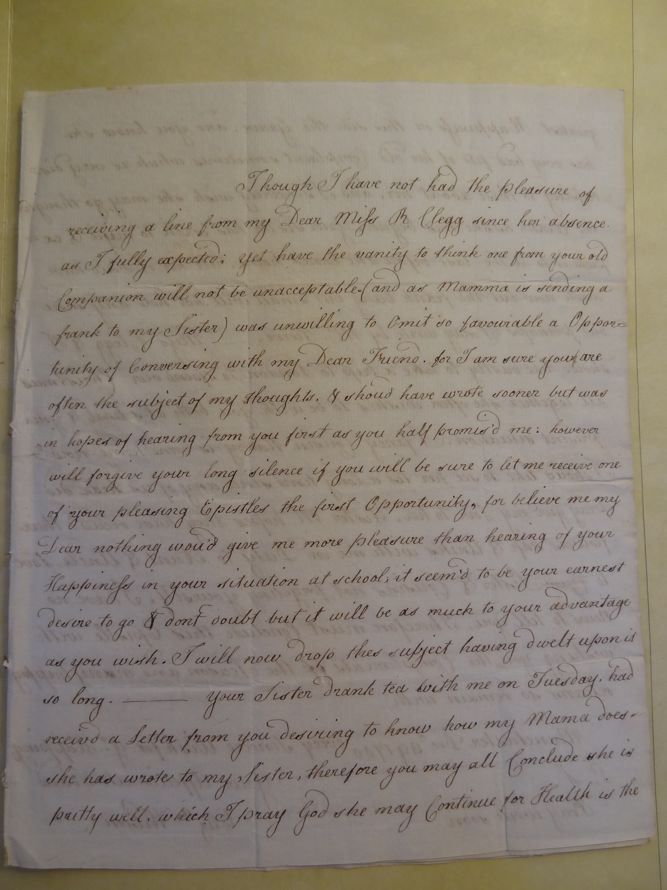 Though I have not had the pleasure of
receiving a line from my Dear Miss R Clegg since her absence.
as I fully expected; yet have the vanity to think one from your old
Companion will not be unacceptable (and as Mamma is sending a
frank to my Sister) was unwilling to Omit so favourable a Oppor=
tunity of Conversing with my Dear Friend. for I am sure you are
often the subject of my thoughts. & shou'd have wrote sooner but was
in hopes of hearing from you first as you half promis'd me: however
will forgive your long silence if you will be sure to let me receive one
of your pleasing Epistles the first Opportunity, for believe me my
Dear nothing wou'd give me more pleasure than hearing of your
Happiness in your situation at school, it seem'd to be your earnest
desire to go & dont doubt but it will be as much to your advantage
as you wish. I will now drop thes subject having dwelt upon it
so long. ——— your Sister drank tea with me on Tuesday. had
receiv'd a Letter from you desiring to know how my Mama does-
she has wrote to my Sister, therefore you may all Conclude she is
pretty well. which I pray God she may Continue for Health is the